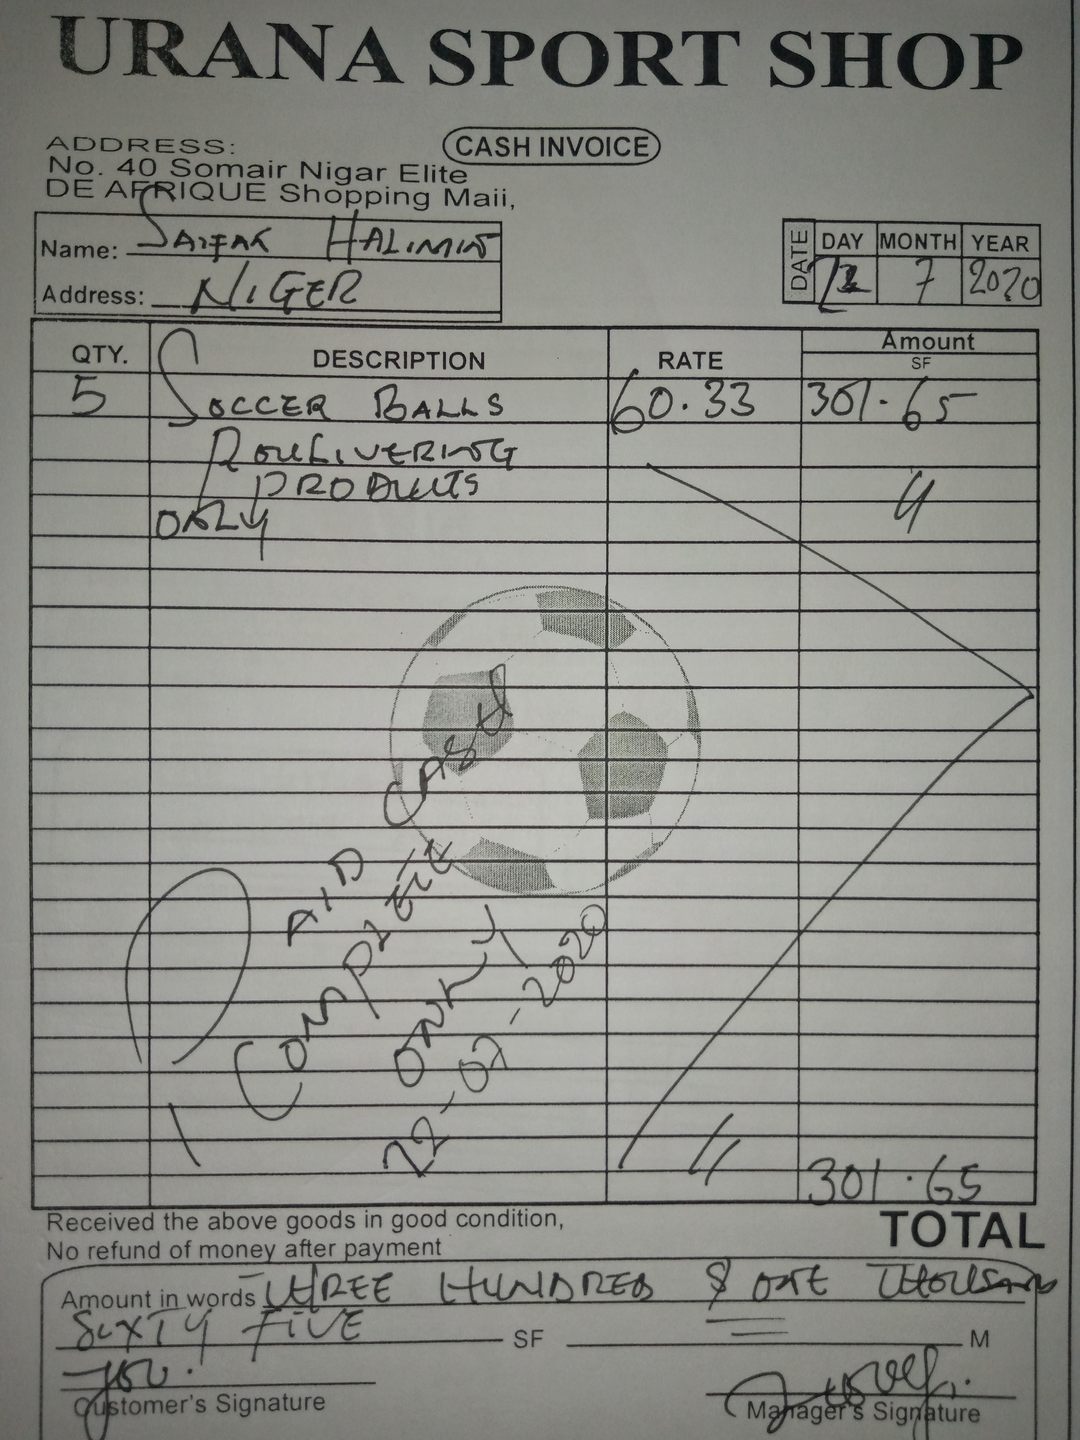 URANA SPORT SHOP
ADDRESS:
CASH INVOICE
No. 40 Somair Nigar Elite
DE AFRIQUE Shopping Maii,
Name: HALIMIN
Address: NIGER
DATE DAY MONTH YEAR
7 2020
QTY. DESCRIPTION RATE Amount
SF
5 SOCCER BALLS 60.33 301.65
PRODUCTS
ONLY
PAID CASH
COMPLETE
ONLY
22-07-2020
301.65
Received the above goods in good condition,
No refund of money after payment
TOTAL
Amount in words THREE HUNDRED & ONE THOUSAND
SIXTY FIVE SF M
Customer's Signature
Manager's Signature